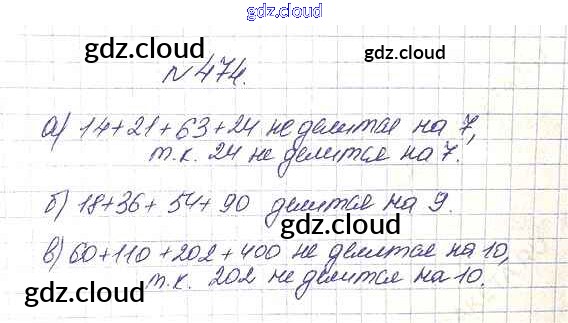 gdz.cloud
gdz.cloud gdz.cloud
N 474.
а) 14+21+63+24 не делится на 7,
т.к. 24 не делится на 7.
gdz.cloud
б) 18+36+54+90 делится на 9.
gdz.cloud
в) 60+110+202+400 не делится на 10,
т.к. 202 не делится на 10.
gdz.cloud